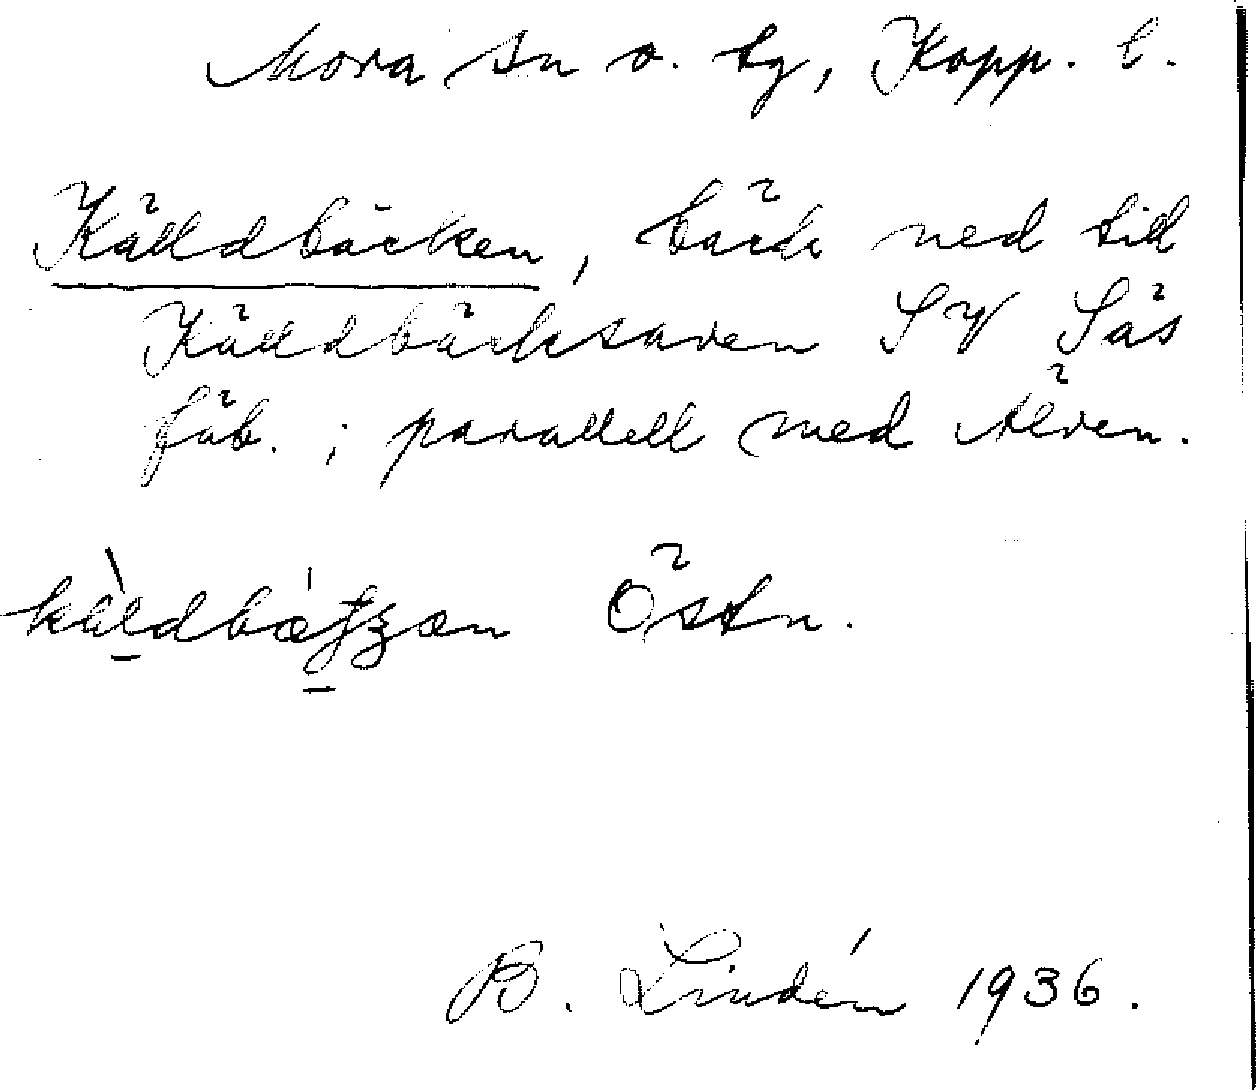 Mora sn o. tg, Kopp. l.
Källdbäcken, bäck ned till
Källdbäcksaven SV Säs
fäb. ; parallell med Älven.
Östn.
B. Lindén 1936.